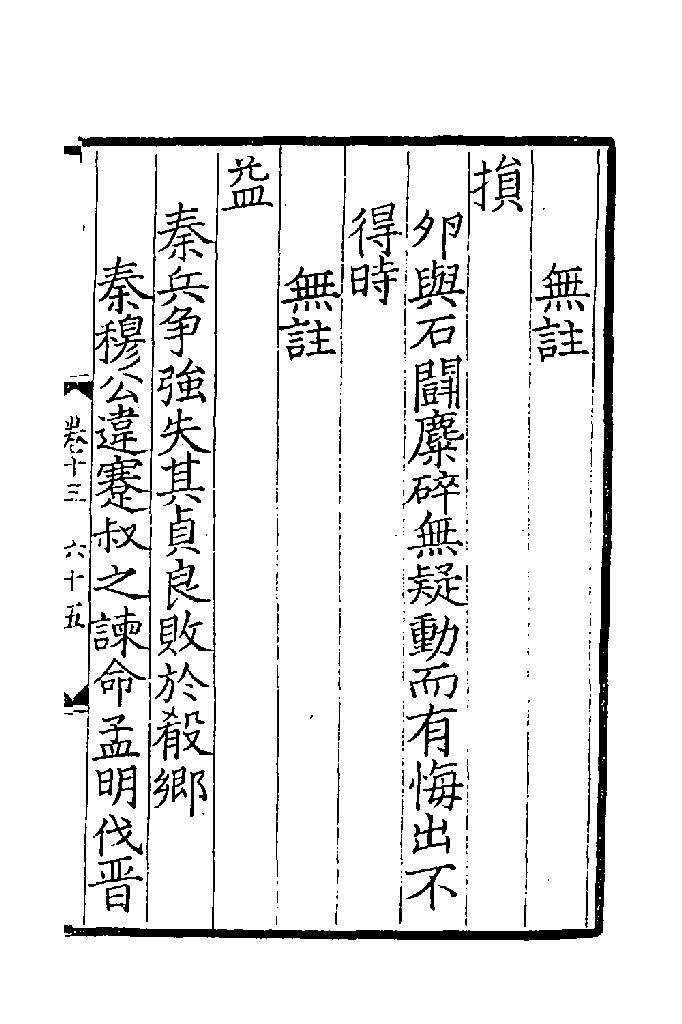 無註
損
夘與石鬭麋碎無疑動而有悔出不
得時
無註
益
秦兵争強失其貞良敗於殽鄉
秦穆公違蹇叔之諫命孟明伐晋
卷十三 六十五